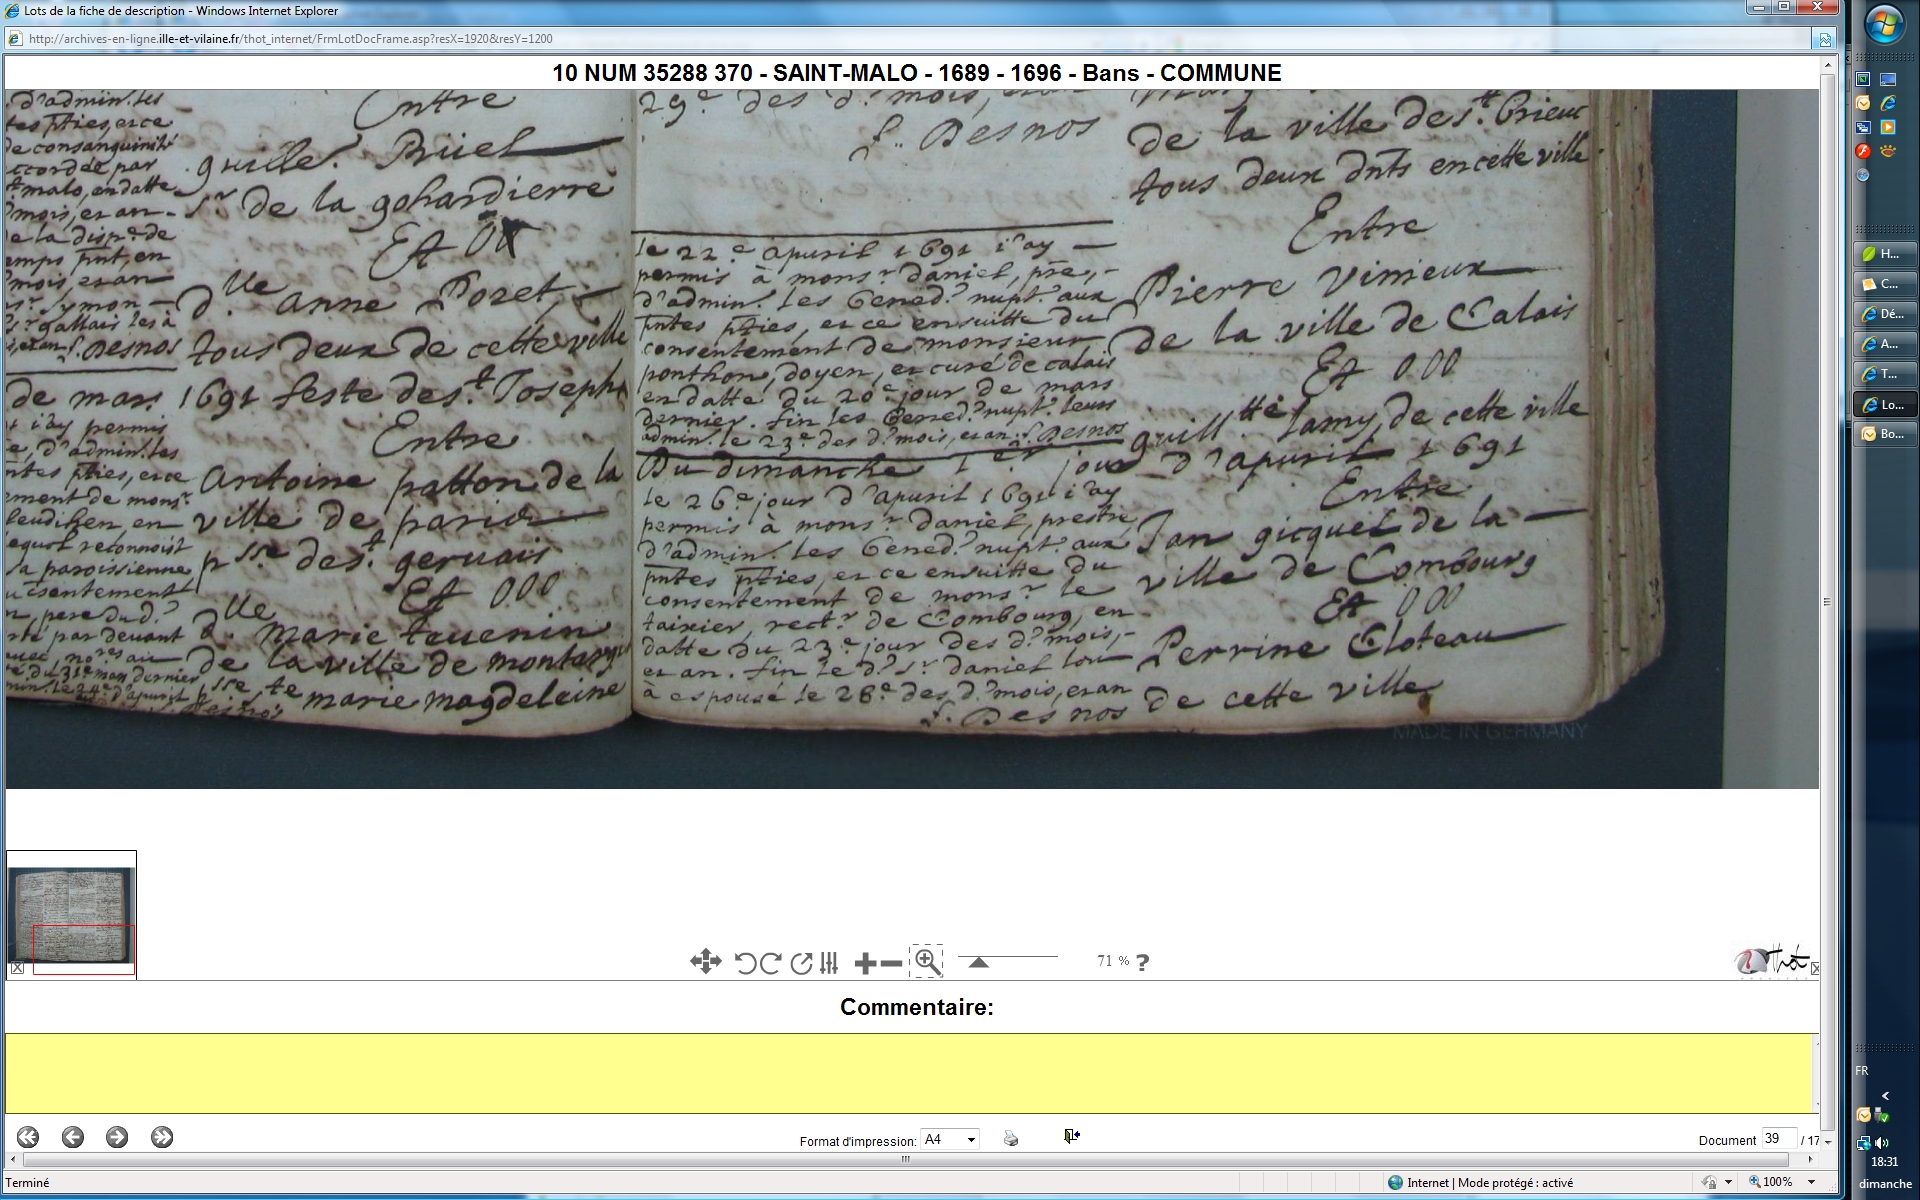 Lots de la fiche de description - Windows Internet Explorer
http://archives-en-ligne.ille-et-vilaine.fr/thot_internet/FrmLotDocFrame.asp?resX=1920&resY=1200
10 NUM 35288 370 - SAINT-MALO - 1689 - 1696 - Bans - COMMUNE
d'admin. les
de consanguinité
accordée par
malo, en datte
mois, et an
de la disp.e de
mois, et an
Symon
gallais les à
f. Desnos
i'ay permis
d'admin. les
ement de mons.r
leudihen, en
lequel reconnoist
sa paroissienne
consentement
n, pere du d.
par devant
du 31e mars dernier
Entre
guille. Brüel
s.r de la gohardierre
Et
d.lle anne Poret,
tous deux de cette ville
de mars 1691 feste de s.t Joseph
Entre
Antoine patton de la
ville de paris
p.sse de s.t gervais
Et 000
d.lle marie tavenin
de la ville de montargis
p.sse s.te marie magdeleine
29.e des d. mois,
f. Desnos
le 22.e apvril 1691 i'ay
permis à mons.r daniel, pre,
d'admin. les bened. nupt. aux
pntes pties, et ce ensuitte du
consentement de monsieur
ponthon, doyen, et curé de calais
en datte du 20.e jour de mars
dernier. fin les bened. nupt. leur
admin. le 23.e des d. mois, et an. f. Desnos
Du dimanche 1.er jour
le 26.e jour d'apvril 1691 i'ay
permis à mons.r daniel, prestre
d'admin. les bened. nupt. aux
pntes pties, et ce ensuitte du
consentement de mons.r le
tairier, rect.r de Combourg, en
datte du 23.e jour des d. mois,
et an. fin le d. s.r daniel les
à espousé le 26.e des d. mois, et an
f. Desnos
de la ville de s.t brieuc
tous deux dnts en cette ville
Entre
Pierre Vinieux
de la ville de Calais
Et 000
guill.tte lamy, de cette ville
d'apvril 1691
Entre
Jan gicquel de la
ville de Combourg
Et 000
Perrine Cloteau
de cette ville
MADE IN GERMANY
71 % ?
Thot
Commentaire:
Format d'impression: A4
Document 39 / 17
Terminé
Internet | Mode protégé : activé
100%
H...
C...
Dé...
A...
T...
Lo...
Bo...
FR
18:31
dimanche